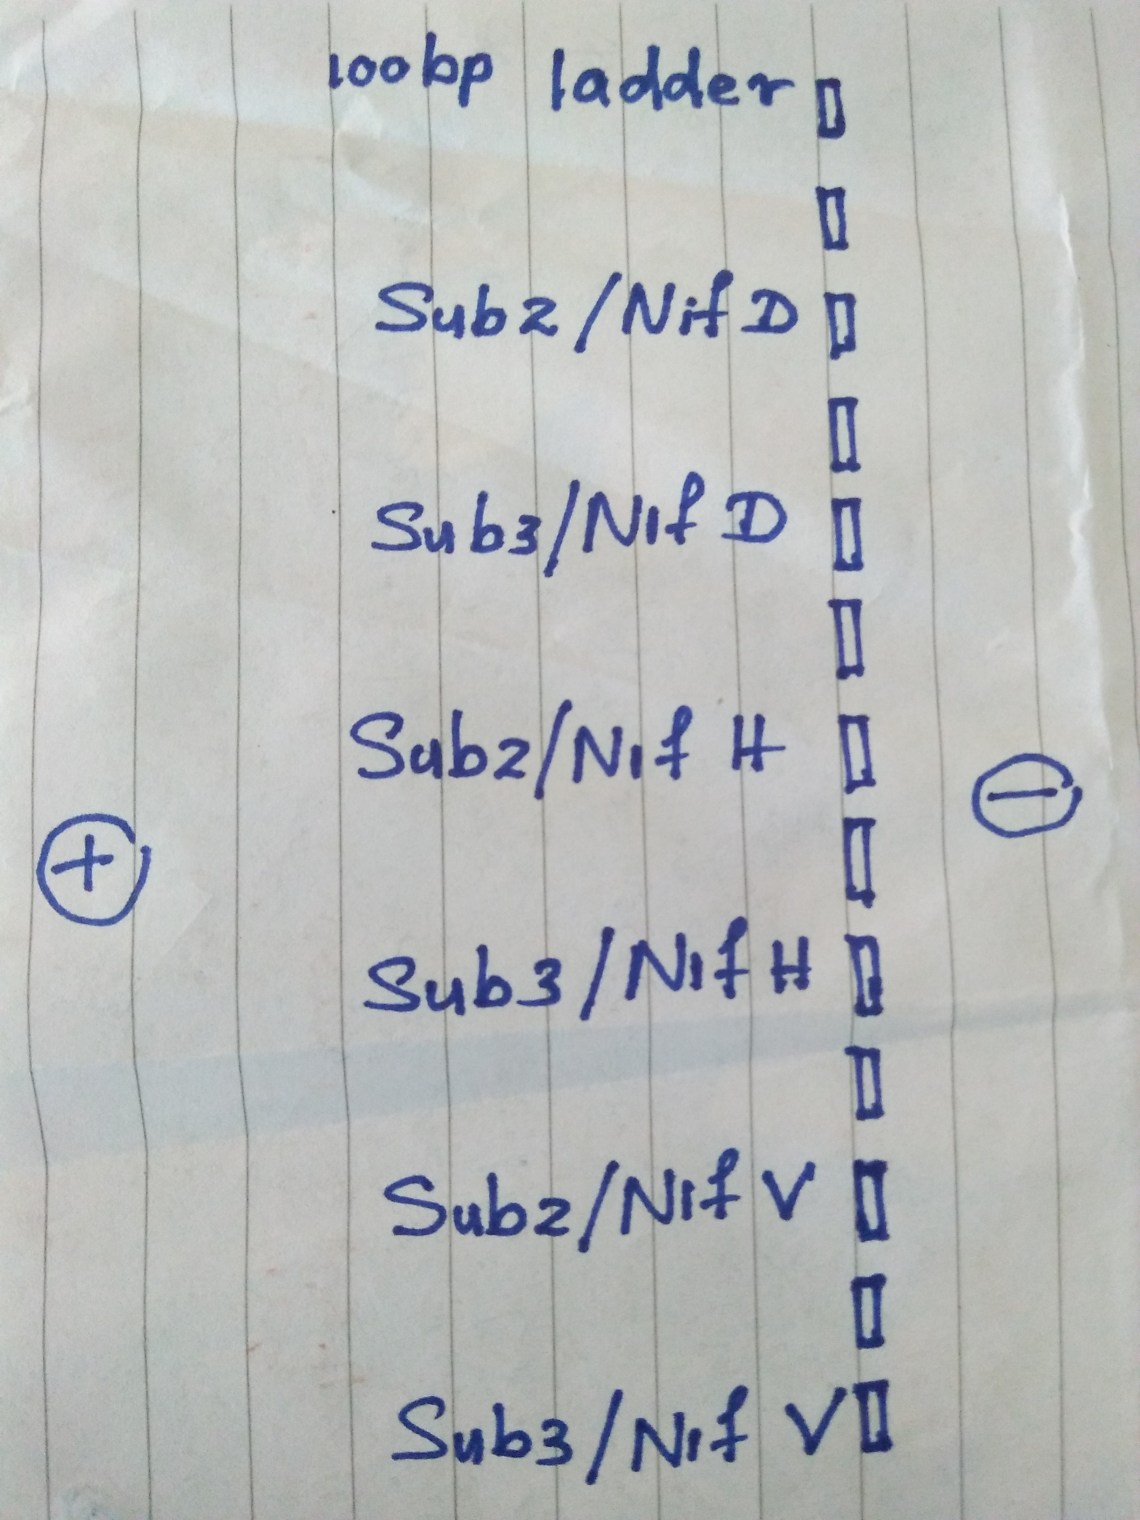 100bp ladder
Sub2/Nif D
Sub3/Nif D
Sub2/Nif H
−
+
Sub3/Nif H
Sub2/Nif V
Sub3/Nif V